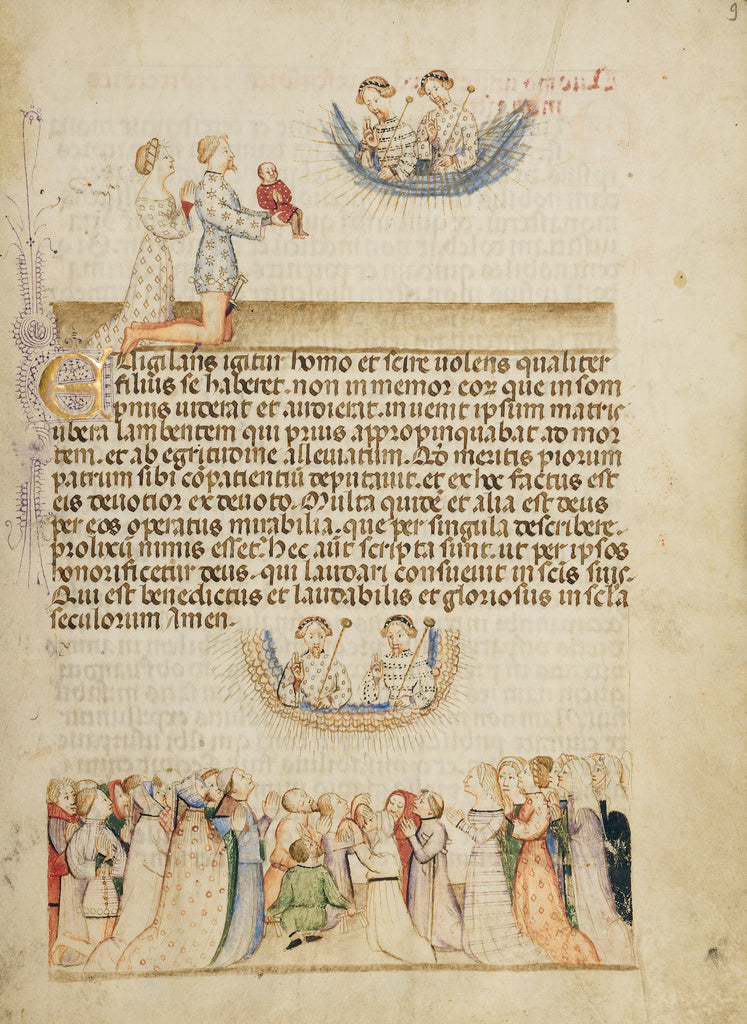 9
Evigilans igitur homo et scire uolens qualiter
filius se haberet. non inmemor eoꝝ que in som
pniis uiderat et audierat. inuenit ipsum matris
ubera lambentem qui prius appropinquabat ad mor
tem. et ab egritudine alleuiatum. Qd̄ meritis piorum
patrum sibi cōpatientiū deputauit. et ex hoc factus est
eis deuotior ex deuoto. Multa quidē et alia est deus
per eos operatus mirabilia. que per singula describere.
prolixū nimis esset. hec aūt scripta sunt. ut per ipsos
honorificetur deus. qui laudari consueuit in scīs suis.
Qui est benedictus et laudabilis et gloriosus in scl̄a
seculorum Amen.